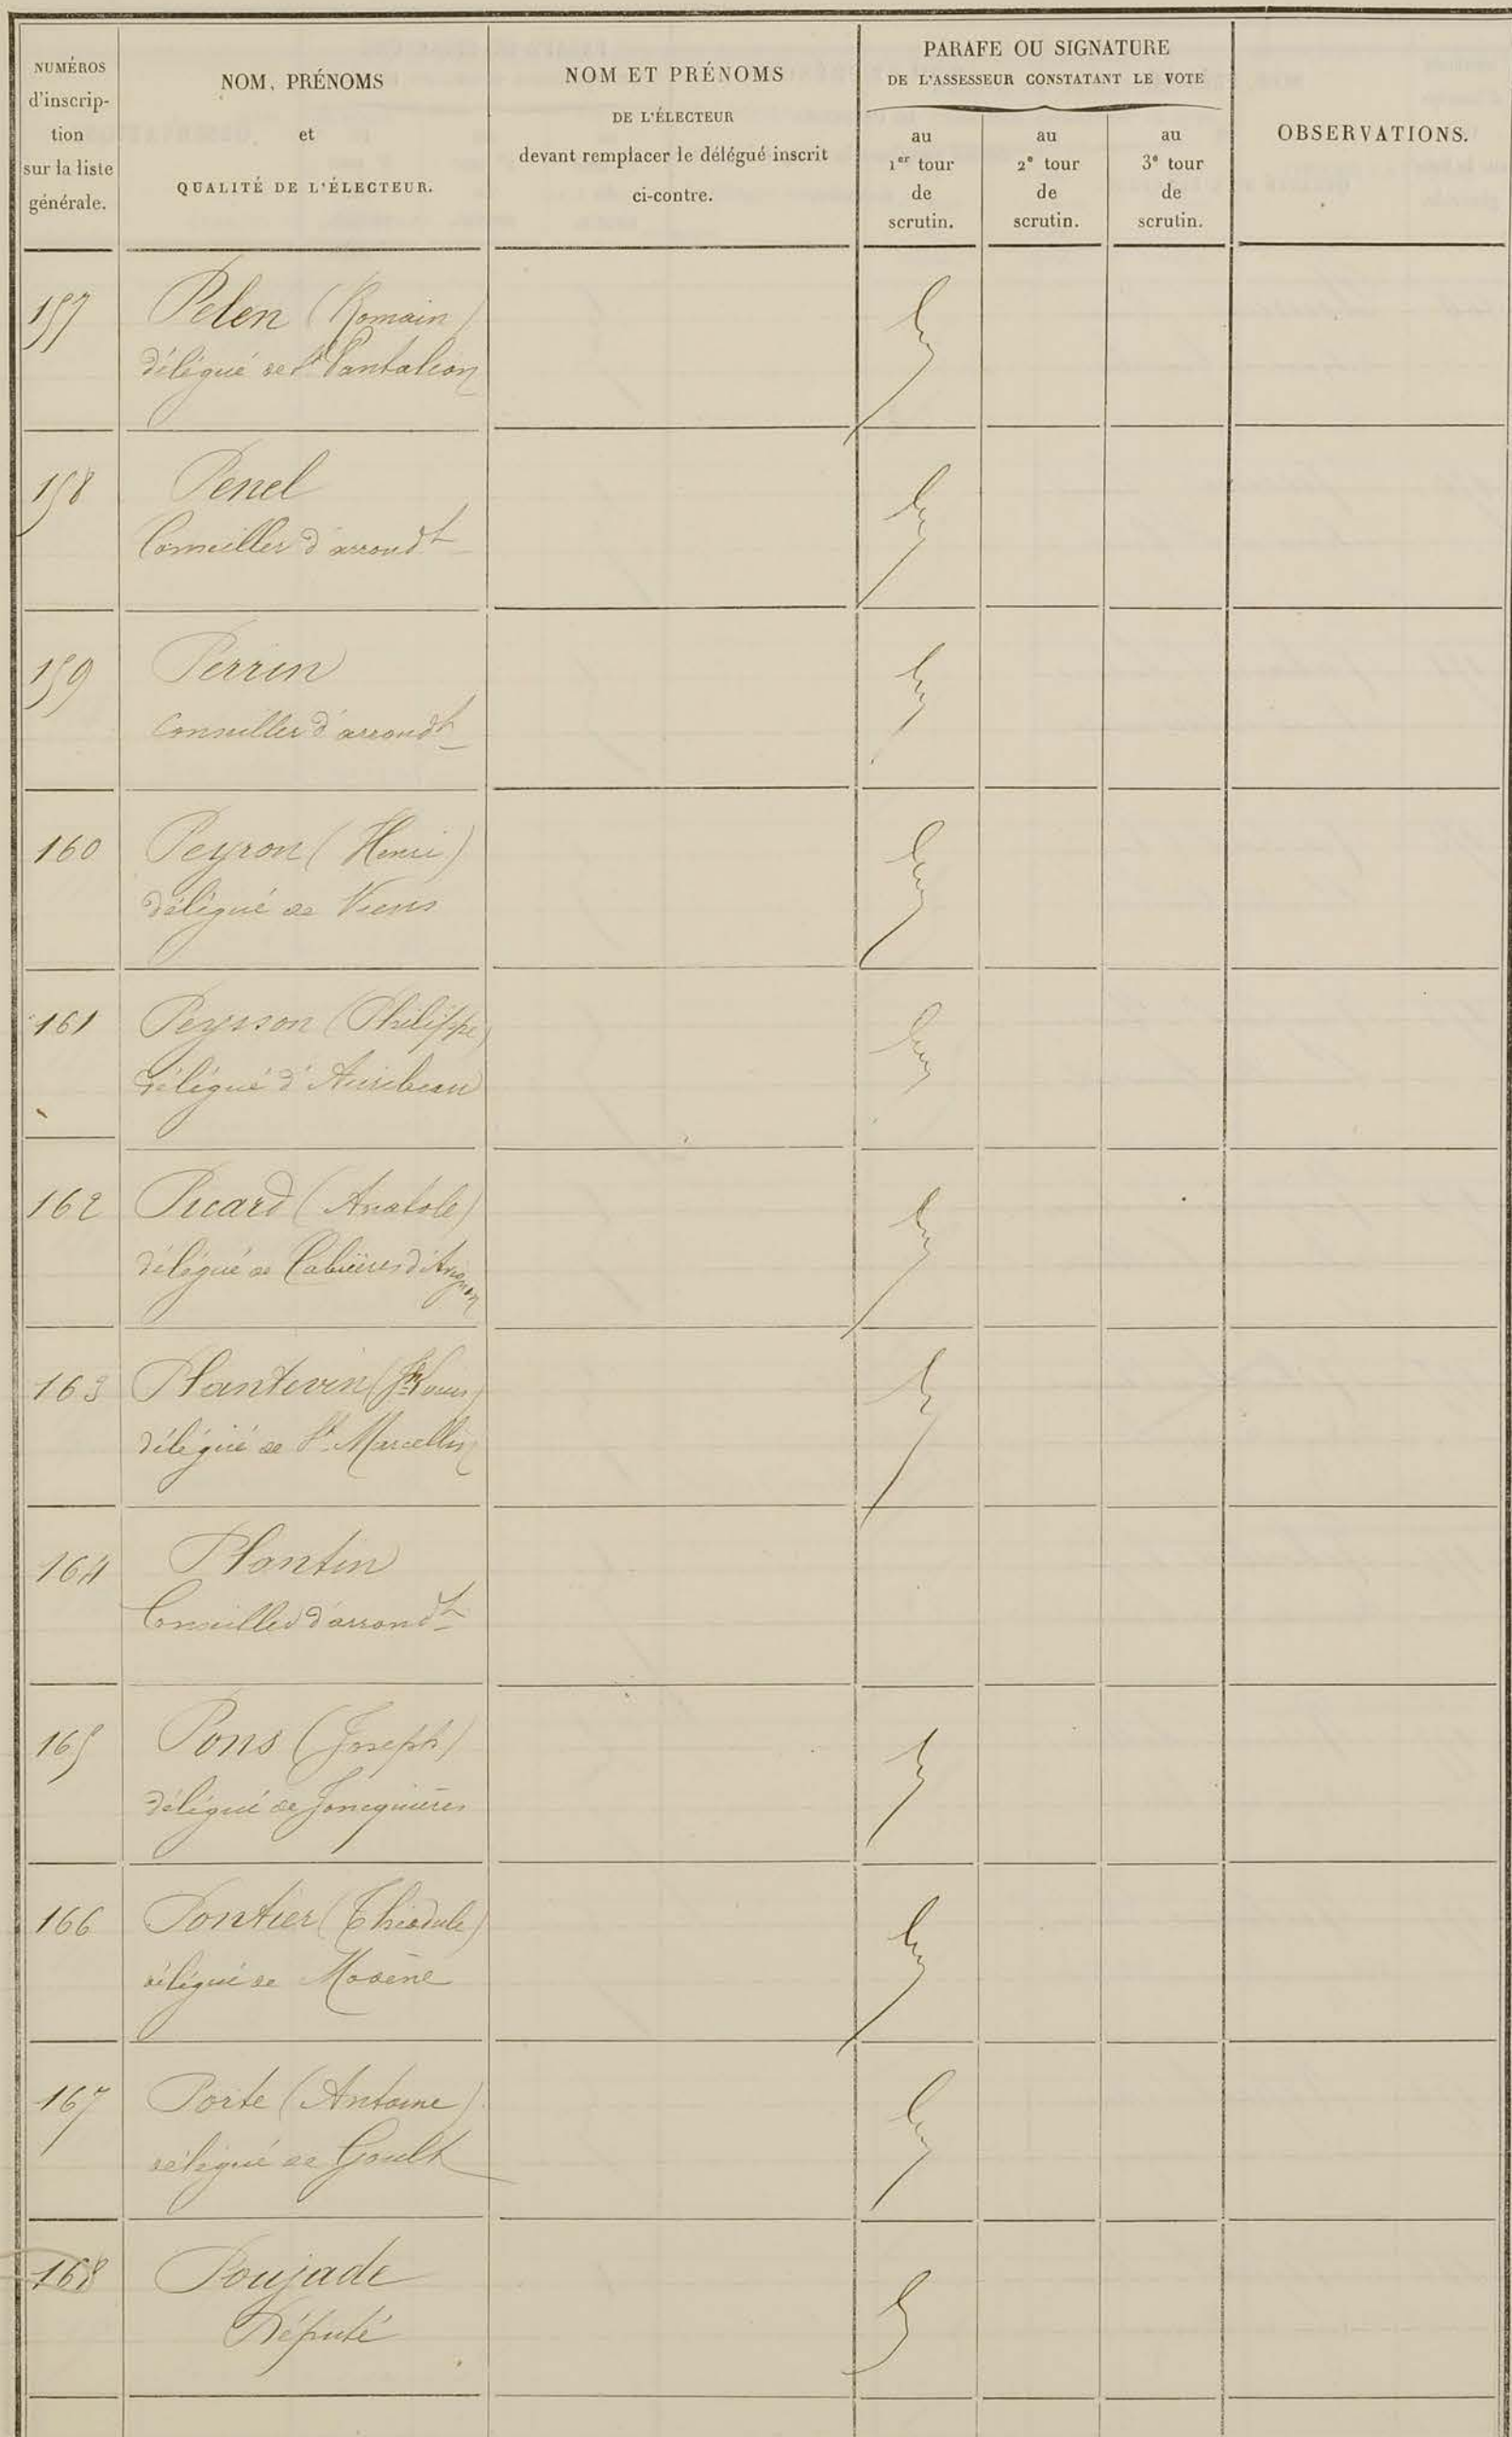 NUMÉROS
d'inscrip-
tion
sur la liste
générale.
NOM, PRÉNOMS
et
QUALITÉ DE L'ÉLECTEUR.
NOM ET PRÉNOMS
DE L'ÉLECTEUR
devant remplacer le délégué inscrit
ci-contre.
PARAFE OU SIGNATURE
DE L'ASSESSEUR CONSTATANT LE VOTE
au
1er tour
de
scrutin.
au
2e tour
de
scrutin.
au
3e tour
de
scrutin.
OBSERVATIONS.
157 Pelen (Romain)
délégué de St Pantaléon
158 Penel
Conseiller d'arrondt
159 Perrin
Conseiller d'arrondt
160 Peyron (Henri)
délégué de Viens
161 Peysson (Philippe)
délégué d'Auribeau
162 Picard (Anatole)
délégué de Cabrières d'Avignon
163 Plantevin (Jh Louis)
délégué de St Marcellin
164 Plantin
Conseiller d'arrondt
165 Pons (Joseph)
délégué de Joncquières
166 Pontier (Théodule)
délégué de Modène
167 Porte (Antoine)
délégué de Goult
168 Poujade
Député